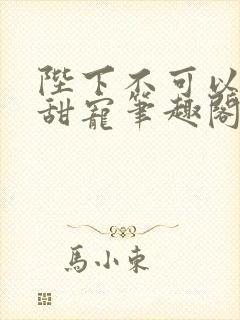 陛下不可以
甜寵筆趣閣
馬小東